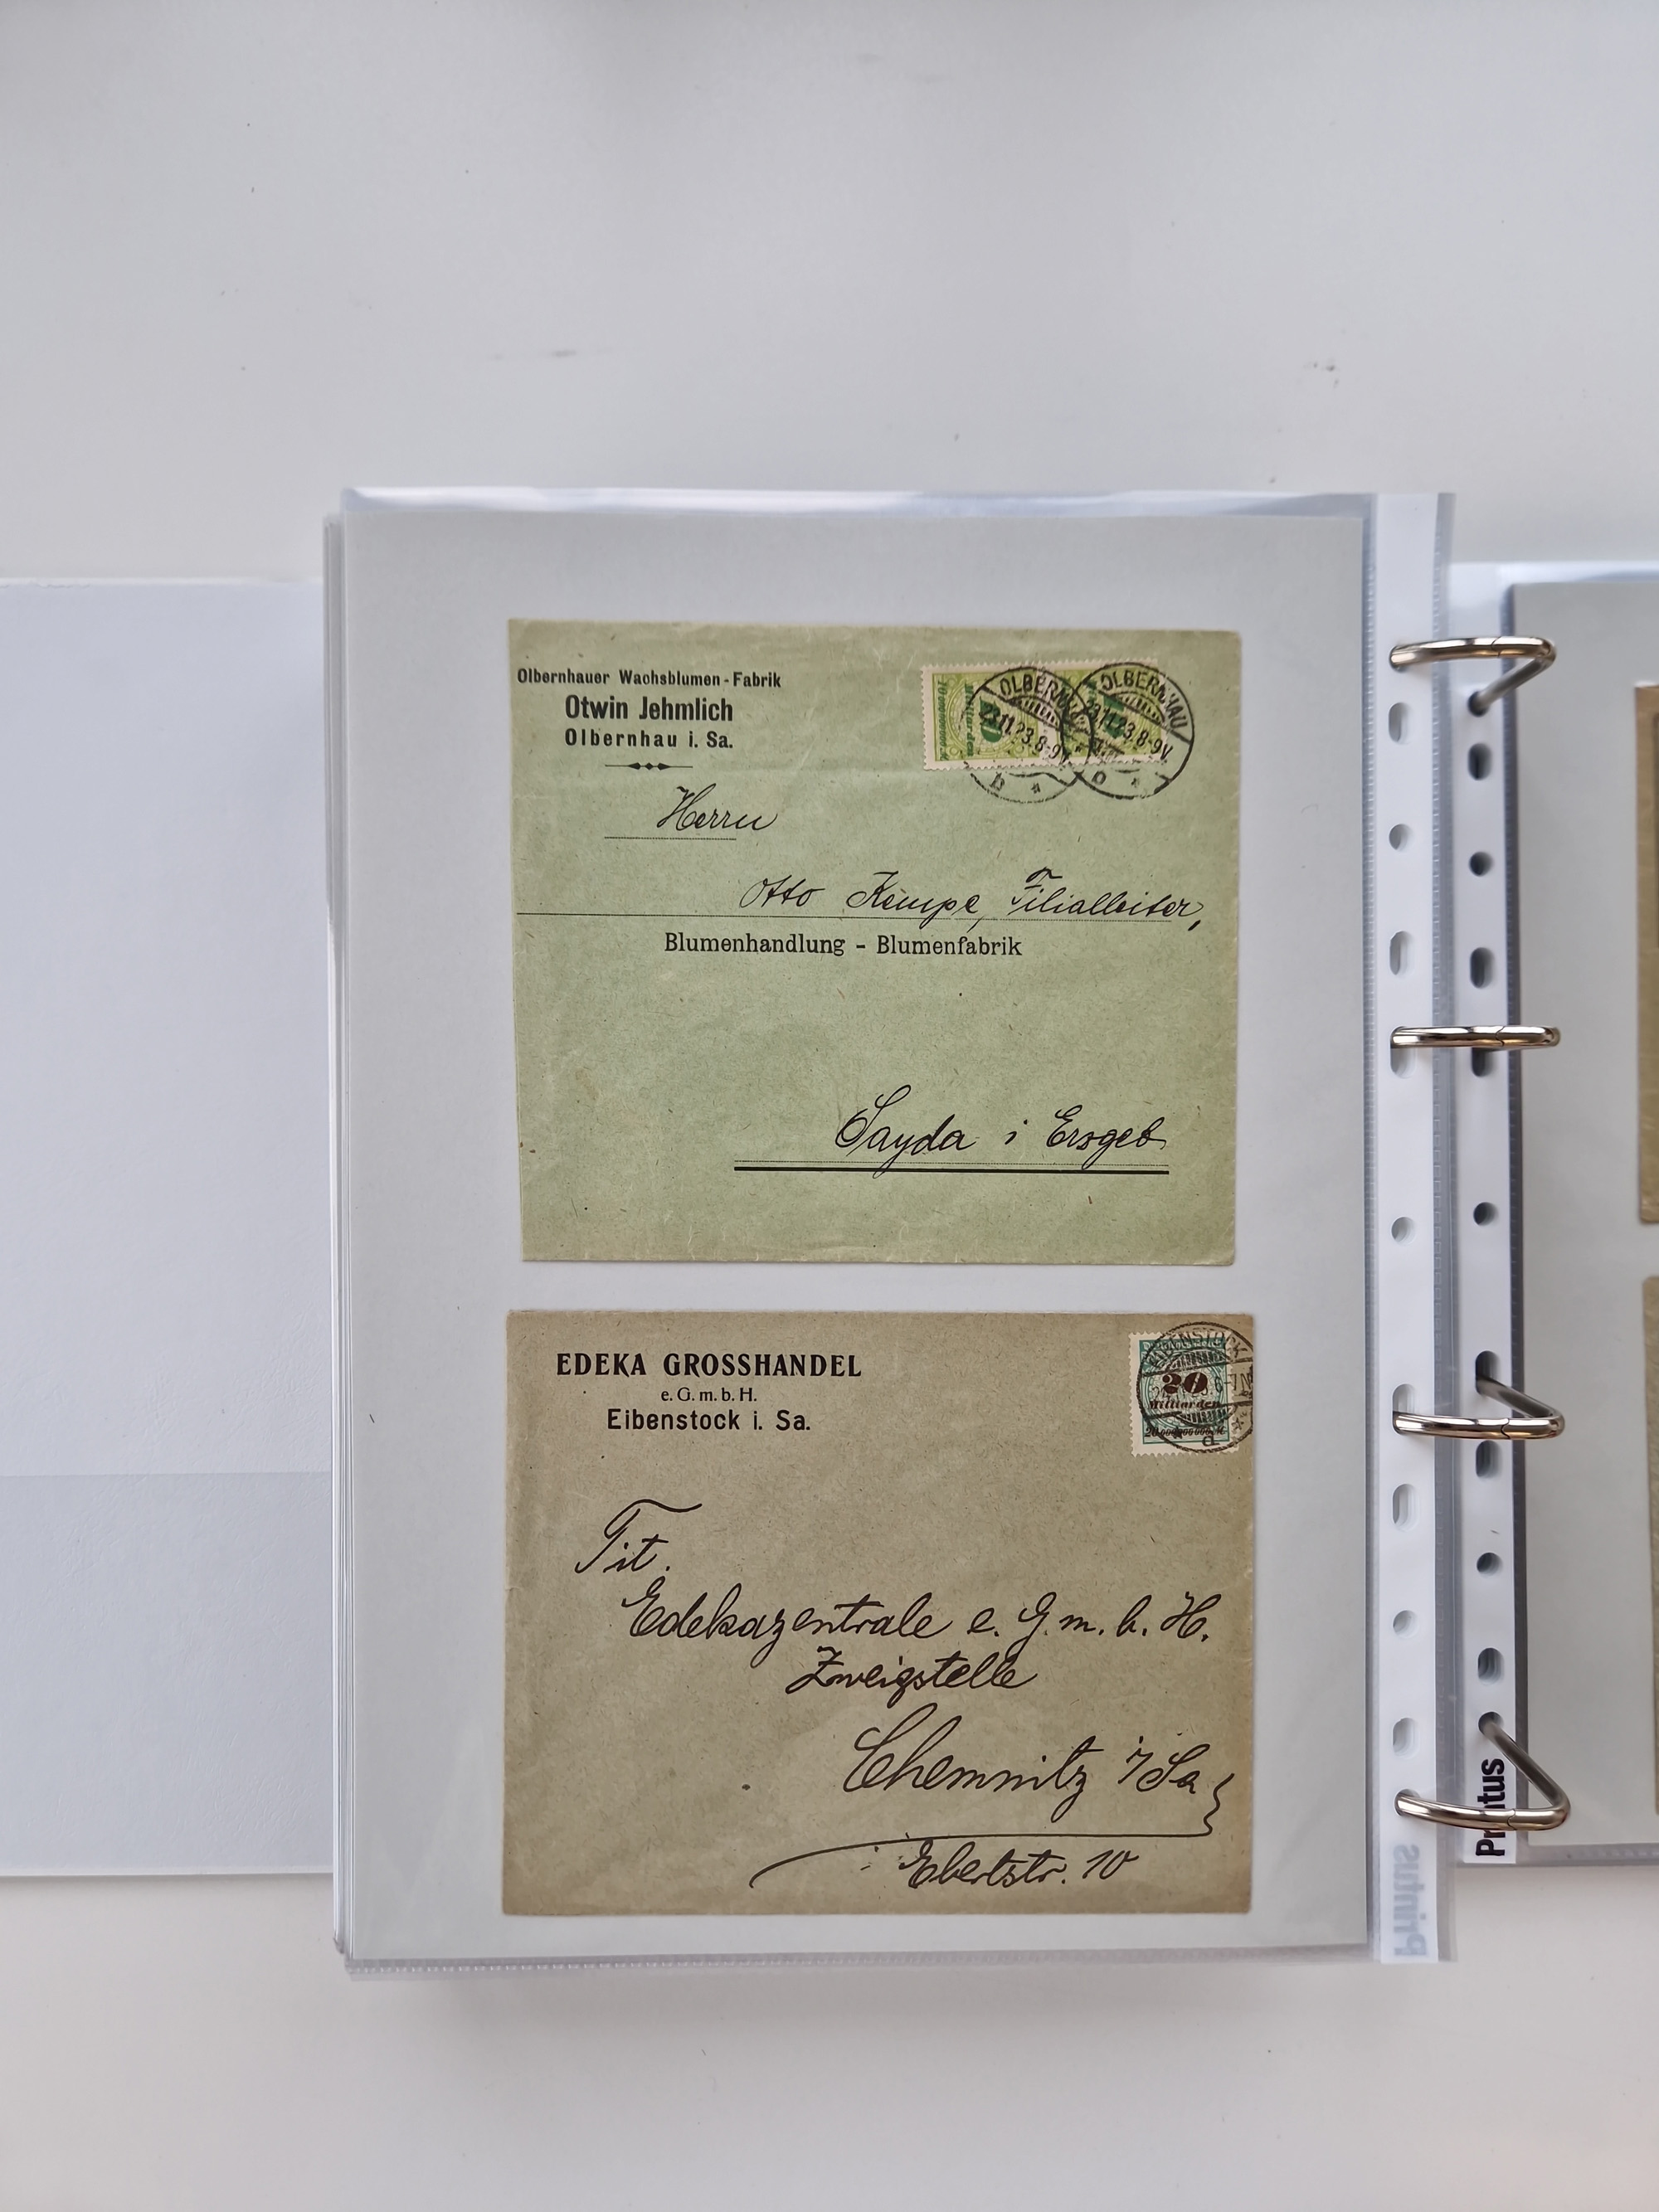 Olbernhauer Wachsblumen-Fabrik
Otwin Jehmlich
Olbernhau i. Sa.
10 Milliarden
OLBERNHAU
23.11.23.8-9V.
OLBERNHAU
23.11.23.8-9V.
Herrn
Otto Kempe, Filialleiter,
Blumenhandlung - Blumenfabrik
Sayda i Ersgeb
EDEKA GROSSHANDEL
e. G. m. b. H.
Eibenstock i. Sa.
EIBENSTOCK
20
Milliarden
d
Tit.
Edekazentrale e. G. m. b. H.
Zweigstelle
Chemnitz i/Sa
Ebertstr. 10
Printus
Printus